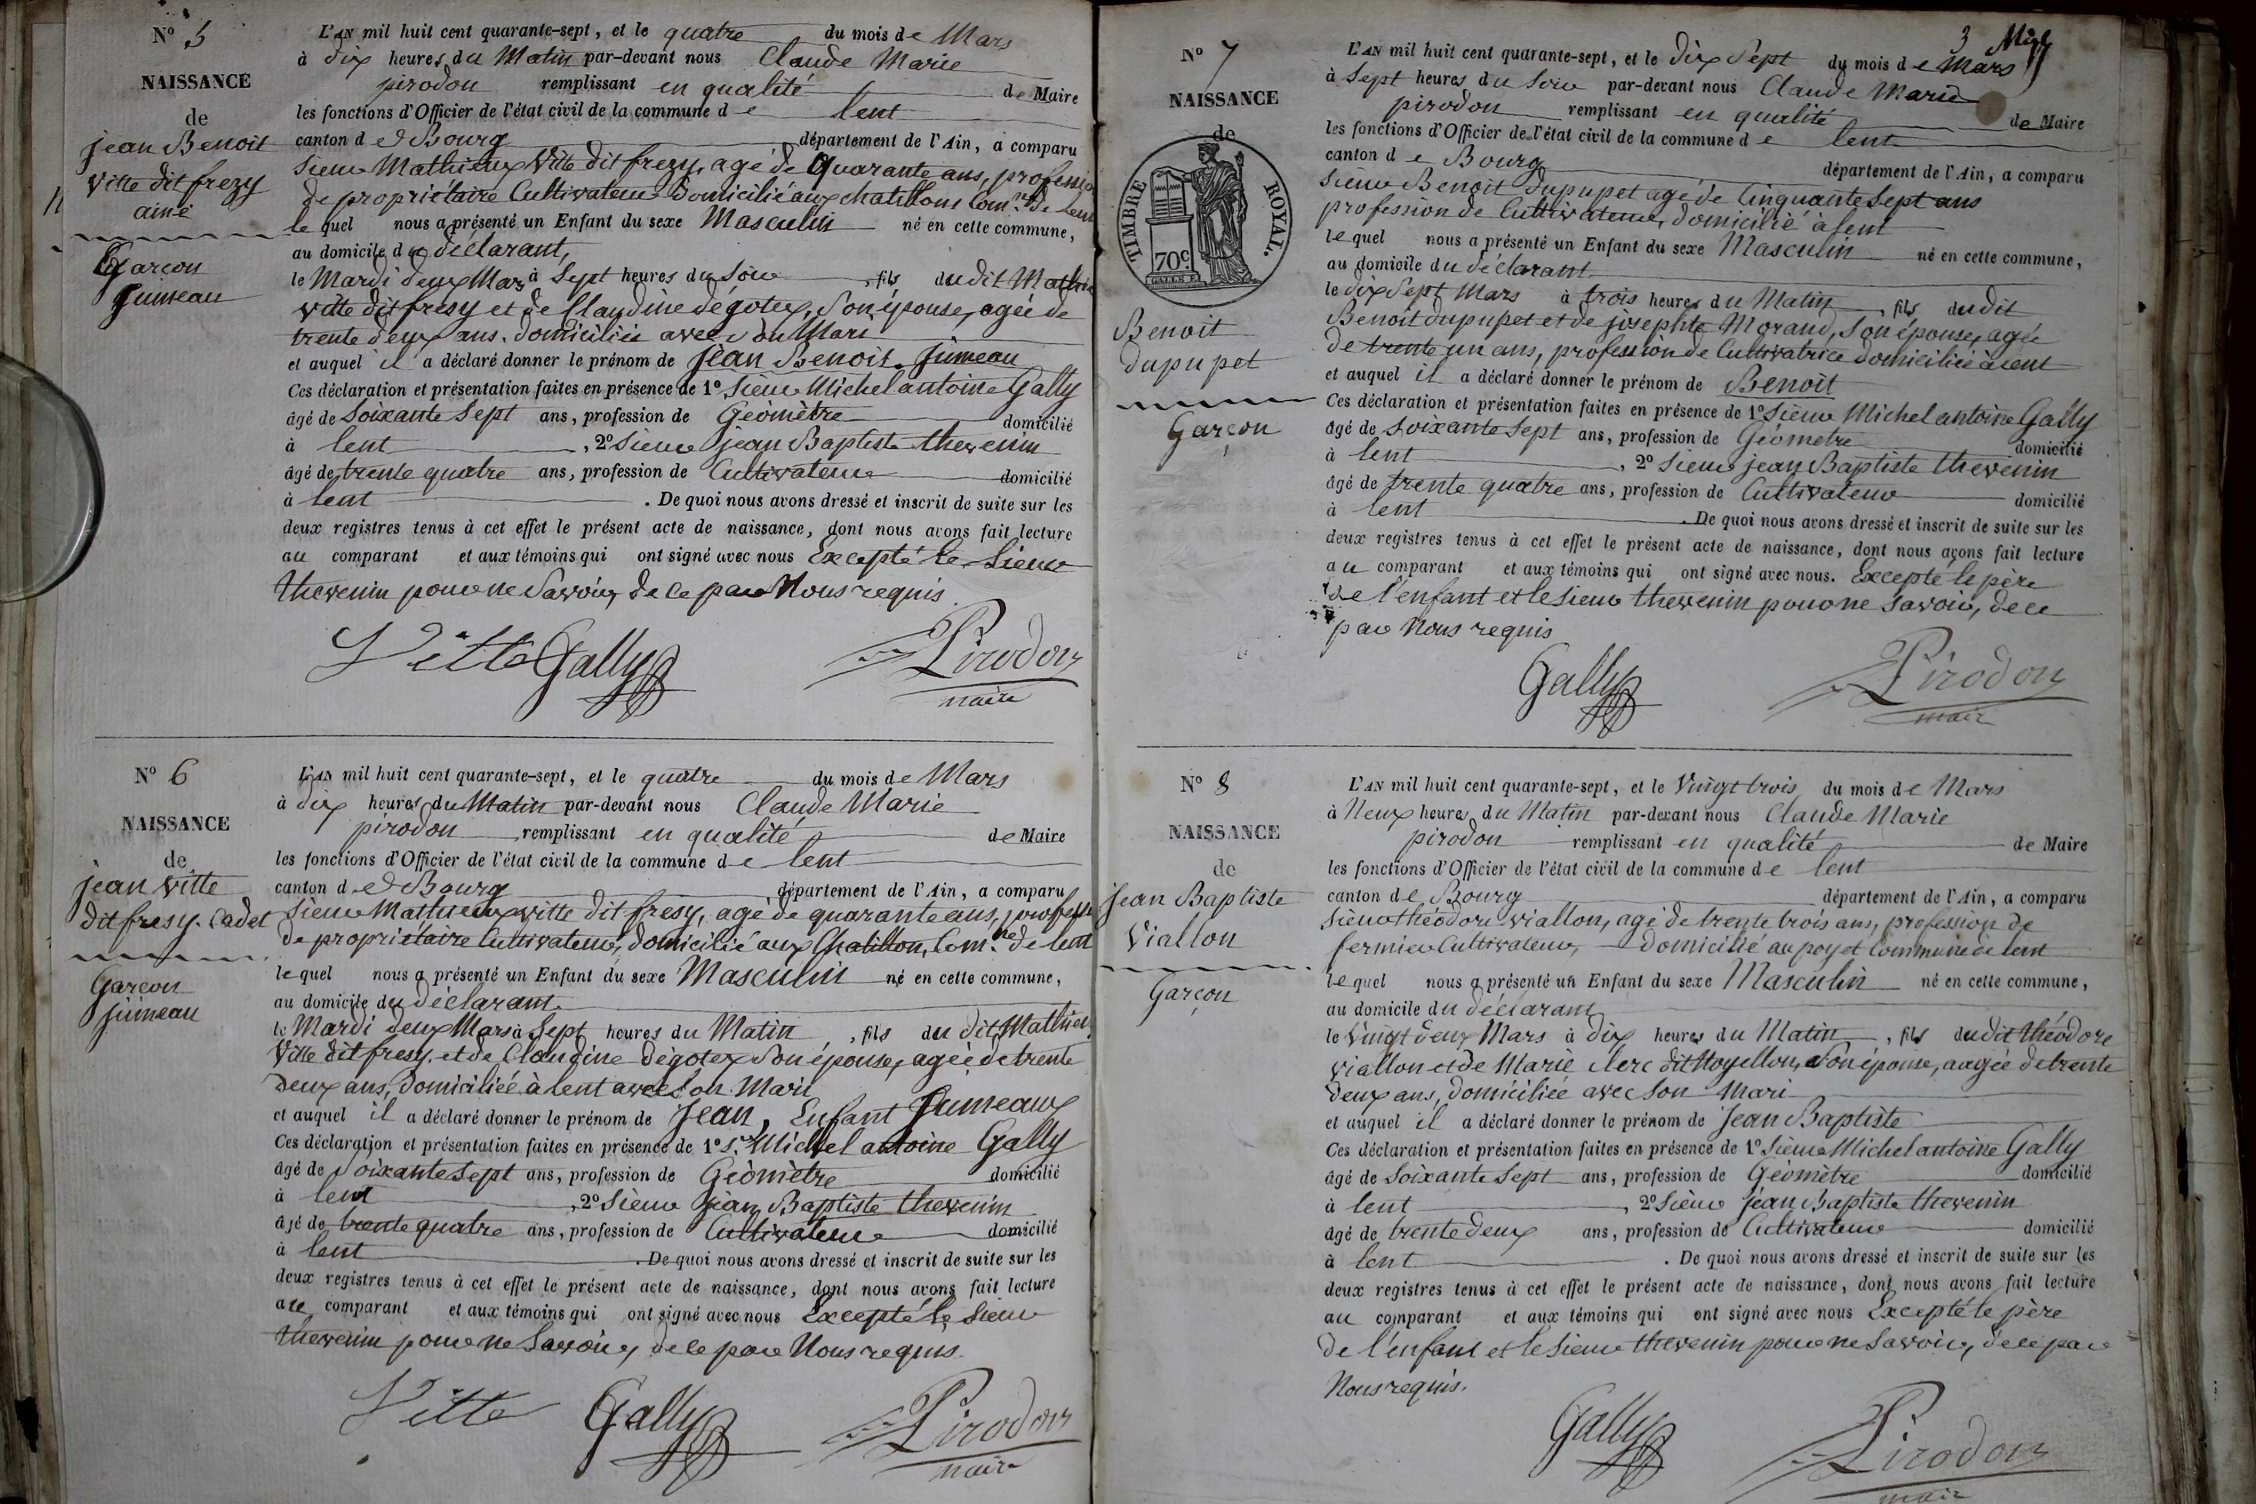 N° 5
NAISSANCE
de
jean Benoit
Vitte dit frezy
ainé
Garcon
Jumeau
L'AN mil huit cent quarante-sept, et le quatre du mois de Mars
à dix heures du Matin par-devant nous Claude Marie
pirodon remplissant en qualité de Maire
les fonctions d'Officier de l'état civil de la commune de lent
canton de Bourg département de l'Ain, a comparu
Sieur Mathieux Vitte dit frezy, agé de quarante ans, profession
de propriétaire Cultivateur Domicilié aux chatillons Com.ne de lent
lequel nous a présenté un Enfant du sexe Masculin né en cette commune,
au domicile du déclarant,
le Mardi deux Mars à Sept heures du Soir, fils du dit Mathieu
vitte dit fresy et de Claudine dégotex, Son épouse, agée de
trente deux ans, domiciliée avec Son Mari
et auquel il a déclaré donner le prénom de Jean Benoit. Jumeau
Ces déclaration et présentation faites en présence de 1° Sieur Michel antoine Gally
âgé de Soixante Sept ans, profession de Géomètre domicilié
à lent, 2° Sieur jean Baptiste thevenin
âgé de trente quatre ans, profession de Cultivateur domicilié
à lent. De quoi nous avons dressé et inscrit de suite sur les
deux registres tenus à cet effet le présent acte de naissance, dont nous avons fait lecture
au comparant et aux témoins qui ont signé avec nous Excepté le Sieur
thevenin pour ne Savoir, de ce par Nous requis.
Vitte Gally Pirodon
maire
N° 6
NAISSANCE
de
jean vitte
dit fresy. Cadet
Garcon
jumeau
L'AN mil huit cent quarante-sept, et le quatre du mois de Mars
à dix heures du Matin par-devant nous Claude Marie
pirodon remplissant en qualité de Maire
les fonctions d'Officier de l'état civil de la commune de lent
canton de Bourg département de l'Ain, a comparu
Sieur Mathieux vitte dit fresy, agé de quarante ans, profession
de propriétaire Cultivateur, domicilié aux Chatillon, Com.ne de lent
lequel nous a présenté un Enfant du sexe Masculin né en cette commune,
au domicile du déclarant
le Mardi deux Mars à Sept heures du Matin, fils du dit Mathieu
Vitte dit fresy, et de Claudine dégotex Son épouse, agée de trente
Deux ans, domiciliée à lent avec Son Mari
et auquel il a déclaré donner le prénom de Jean, Enfant Jumeaux
Ces déclaration et présentation faites en présence de 1° S.r Michel antoine Gally
âgé de Soixante Sept ans, profession de Géomètre domicilié
à lent, 2° Sieur jean Baptiste thevenin
âgé de trente quatre ans, profession de Cultivateur domicilié
à lent. De quoi nous avons dressé et inscrit de suite sur les
deux registres tenus à cet effet le présent acte de naissance, dont nous avons fait lecture
au comparant et aux témoins qui ont signé avec nous Excepté le Sieur
thevenin pour ne Savoir, de ce par Nous requis.
Vitte Gally Pirodon
maire
3
N° 7
NAISSANCE
de
TIMBRE ROYAL.
70c.
Benoit
dupupet
Garçon
L'AN mil huit cent quarante-sept, et le dix Sept du mois de Mars
à Sept heures du Soir par-devant nous Claude Marie
pirodon remplissant en qualité de Maire
les fonctions d'Officier de l'état civil de la commune de lent
canton de Bourg département de l'Ain, a comparu
Sieur Benoit dupupet agé de Cinquante Sept ans
profession de Cultivateur, domicilié à lent
lequel nous a présenté un Enfant du sexe Masculin né en cette commune,
au domicile du déclarant
le dix Sept Mars à trois heures du Matin, fils du dit
Benoit dupupet et de josephte Morand, Son épouse, agée
de trente un ans, profession de Cultivatrice domiciliée à lent
et auquel il a déclaré donner le prénom de Benoit
Ces déclaration et présentation faites en présence de 1° Sieur Michel antoine Gally
âgé de Soixante Sept ans, profession de Géometre domicilié
à lent, 2° Sieur jean Baptiste thevenin
âgé de trente quatre ans, profession de Cultivateur domicilié
à lent. De quoi nous avons dressé et inscrit de suite sur les
deux registres tenus à cet effet le présent acte de naissance, dont nous avons fait lecture
au comparant et aux témoins qui ont signé avec nous. Excepté le père
de l'enfant et le Sieur thevenin pour ne Savoir, de ce
par Nous requis
Gally Pirodon
mair
N° 8
NAISSANCE
de
jean Baptiste
Viallon
Garçon
L'AN mil huit cent quarante-sept, et le Vingt trois du mois de Mars
à Neuf heures du Matin par-devant nous Claude Marie
pirodon remplissant en qualité de Maire
les fonctions d'Officier de l'état civil de la commune de lent
canton de Bourg département de l'Ain, a comparu
Sieur théodore viallon, agé de trente trois ans, profession de
fermier Cultivateur, domicilié au poyet Commune de lent
lequel nous a présenté un Enfant du sexe Masculin né en cette commune,
au domicile du déclarant
le Vingt deux Mars à dix heures du Matin, fils du dit théodore
viallon et de Marie clerc dit Noyellon, Son épouse, aagée de trente
Deux ans, domiciliée avec Son Mari
et auquel il a déclaré donner le prénom de Jean Baptiste
Ces déclaration et présentation faites en présence de 1° Sieur Michel antoine Gally
âgé de Soixante Sept ans, profession de Géomètre domicilié
à lent, 2° Sieur jean Baptiste thevenin
âgé de trente deux ans, profession de Cultivateur domicilié
à lent. De quoi nous avons dressé et inscrit de suite sur les
deux registres tenus à cet effet le présent acte de naissance, dont nous avons fait lecture
au comparant et aux témoins qui ont signé avec nous Excepté le père
de l'enfant et le Sieur thevenin pour ne Savoir, de ce par
Nous requis.
Gally Pirodon
mair